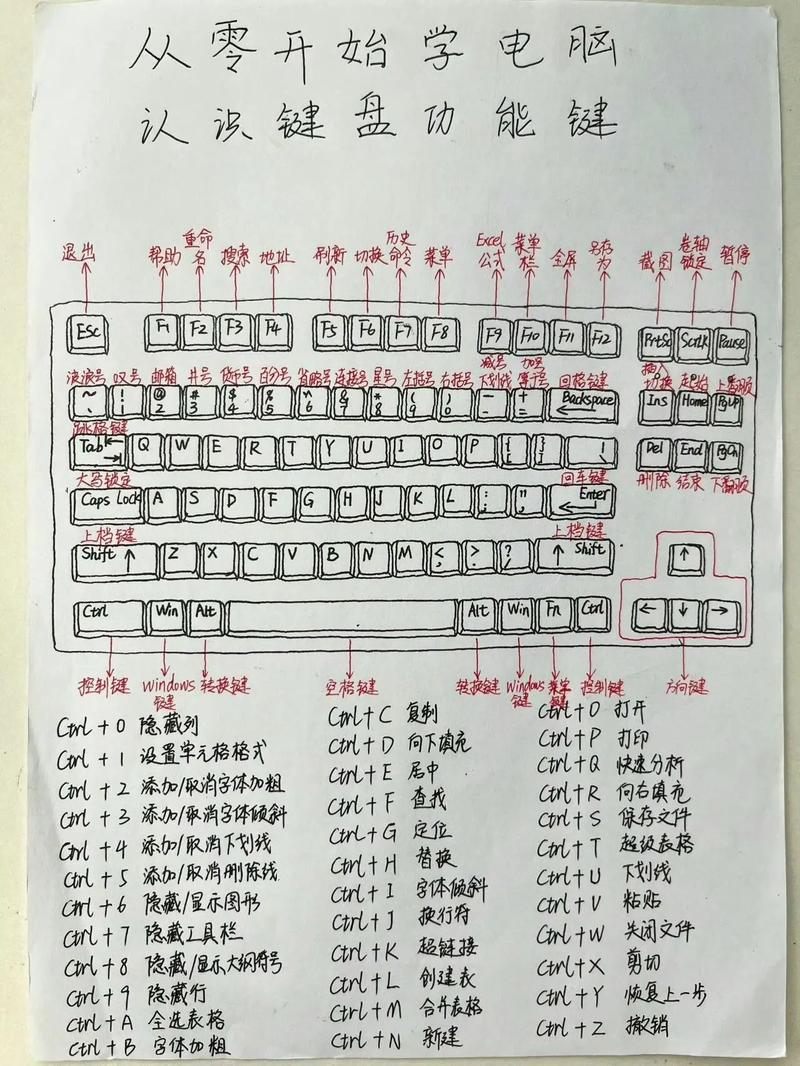 从零开始学电脑
认识键盘功能键
退出 帮助 重命名 搜索 地址 刷新 切换 历史命令 菜单 Excel公式 菜单栏 全屏 另存为 截图 卷轴锁定 暂停
Esc F1 F2 F3 F4 F5 F6 F7 F8 F9 F10 F11 F12 PrtSc ScrLK Pause
波浪号 叹号 邮箱 井号 货币号 百分号 省略号 连接号 星号 左括号 右括号 减号下划线 加号等于号 回格键 插入切换 起始 上翻页
~ 、 ! 1 @ 2 # 3 $ 4 % 5 ^ 6 & 7 * 8 ( 9 ) 0 - - + = Backspace Ins Home PgUp
跳格键
Tab Q W E R T Y U I O P { [ } ] | \ Del End PgDn
大写锁定 回车键 删除 结束 下翻页
Caps Lock A S D F G H J K L : ; " , Enter
上档键 上档键
Shift ↑ Z X C V B N M < , > . ? / ↑ Shift ↑
Ctrl Win Alt Alt Win Fn Ctrl ← ↓ →
控制键 Windows键 转换键 空格键 转换键 Windows键 菜单键 控制键 方向键
Ctrl + 0 隐藏列
Ctrl + 1 设置单元格格式
Ctrl + 2 添加/取消字体加粗
Ctrl + 3 添加/取消字体倾斜
Ctrl + 4 添加/取消下划线
Ctrl + 5 添加/取消删除线
Ctrl + 6 隐藏/显示图形
Ctrl + 7 隐藏工具栏
Ctrl + 8 隐藏/显示大纲符号
Ctrl + 9 隐藏行
Ctrl + A 全选表格
Ctrl + B 字体加粗
Ctrl + C 复制
Ctrl + D 向下填充
Ctrl + E 居中
Ctrl + F 查找
Ctrl + G 定位
Ctrl + H 替换
Ctrl + I 字体倾斜
Ctrl + J 换行符
Ctrl + K 超链接
Ctrl + L 创建表
Ctrl + M 合并表格
Ctrl + N 新建
Ctrl + O 打开
Ctrl + P 打印
Ctrl + Q 快速分析
Ctrl + R 向右填充
Ctrl + S 保存文件
Ctrl + T 超级表格
Ctrl + U 下划线
Ctrl + V 粘贴
Ctrl + W 关闭文件
Ctrl + X 剪切
Ctrl + Y 恢复上一步
Ctrl + Z 撤销